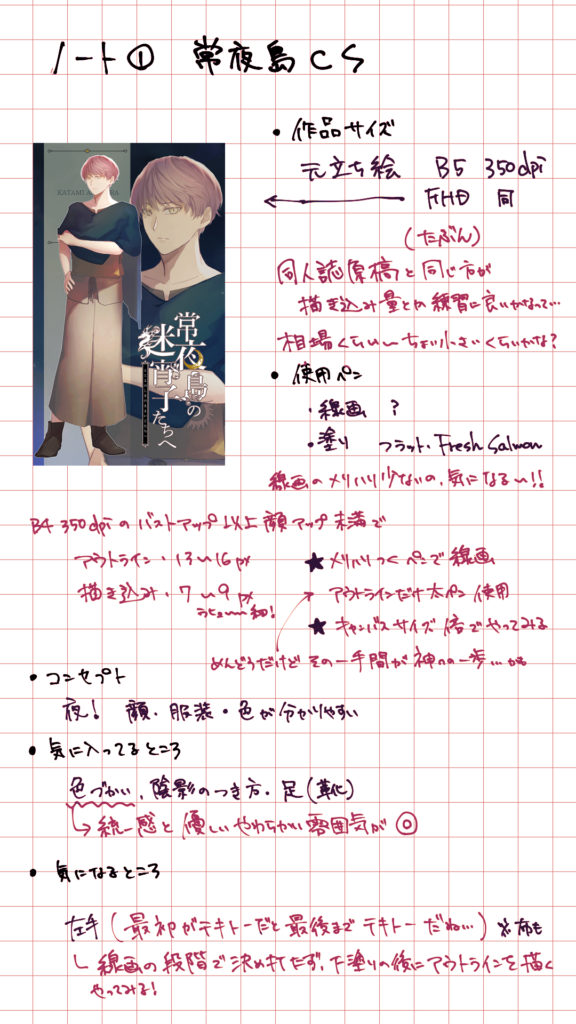 ノート① 常夜島CS
・作品サイズ
元立ち絵 B5 350dpi
FHD 同
(たぶん)
同人誌原稿と同じ方が
描き込み量とか練習に良いかなって…
相場くらい〜ちょい小さいくらいかな?
・使用ペン
・線画 ?
・塗り フラット・Fresh Salmon
線画のメリハリ少ないの、気になる〜!!
KATAMI
常夜島の
迷宵子
たちへ
B4 350dpiのバストアップ以上顔アップ未満で
アウトライン・13〜16px
描き込み・7〜9px
★メリハリつくペンで線画
アウトラインだけ太ペン使用
★キャンバスサイズ倍でやってみる
めんどうだけどその一手間が神への一歩…かも
・コンセプト
夜! 顔・服装・色が分かりやすい
・気に入ってるところ
色づかい、陰影のつき方・足(革靴)
↳統一感と優しいやわらかい雰囲気が◎
・気になるところ
左手(最初がテキトーだと最後までテキトーだね…)※布も
└線画の段階で決め打たず、下塗りの後にアウトラインを描く
やってみる!